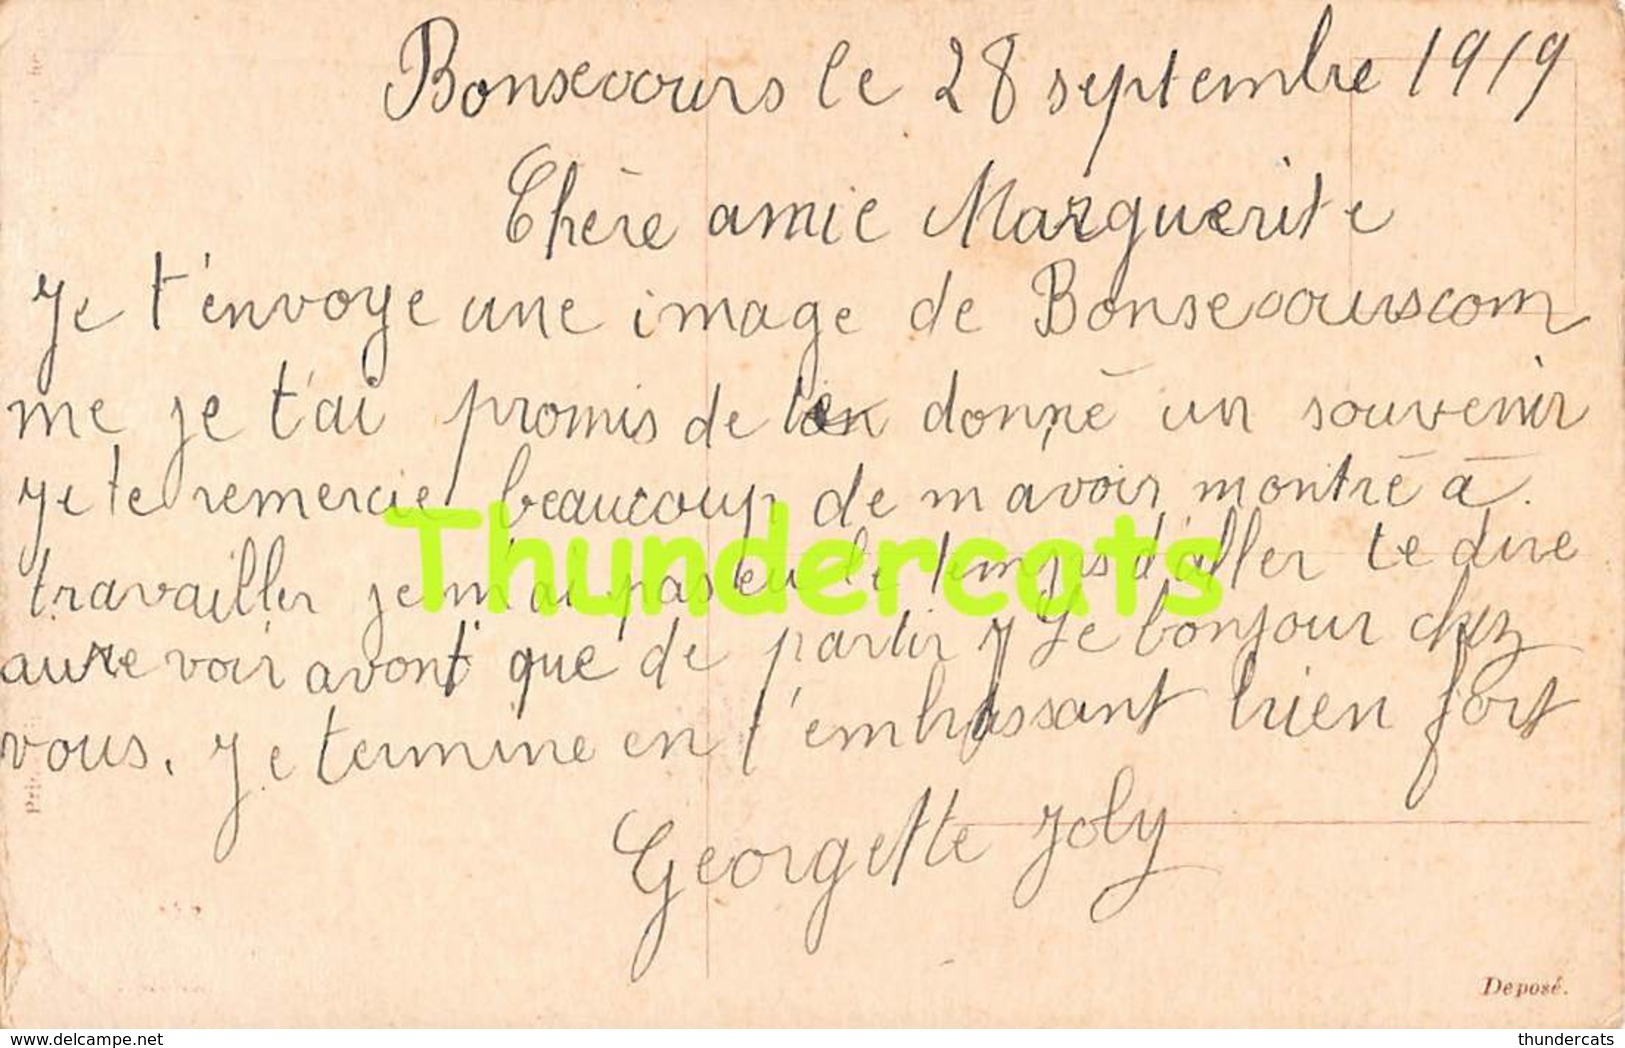 Bonsecours le 28 septembre 1919
Chère amie Marguerite
Je t'envoye une image de Bonsecourscom
me je t'ai promis de donné un souvenir
je te remercie beaucoup de mavoir montré à
travailler je m'ai pas eu le temps d'aller te dire
aure voir avont que de partir Je bonjour chez
vous. Je termine en t'embrassant bien fort
Georgette Joly
Thundercats
Deposé.
www.delcampe.net
thundercats